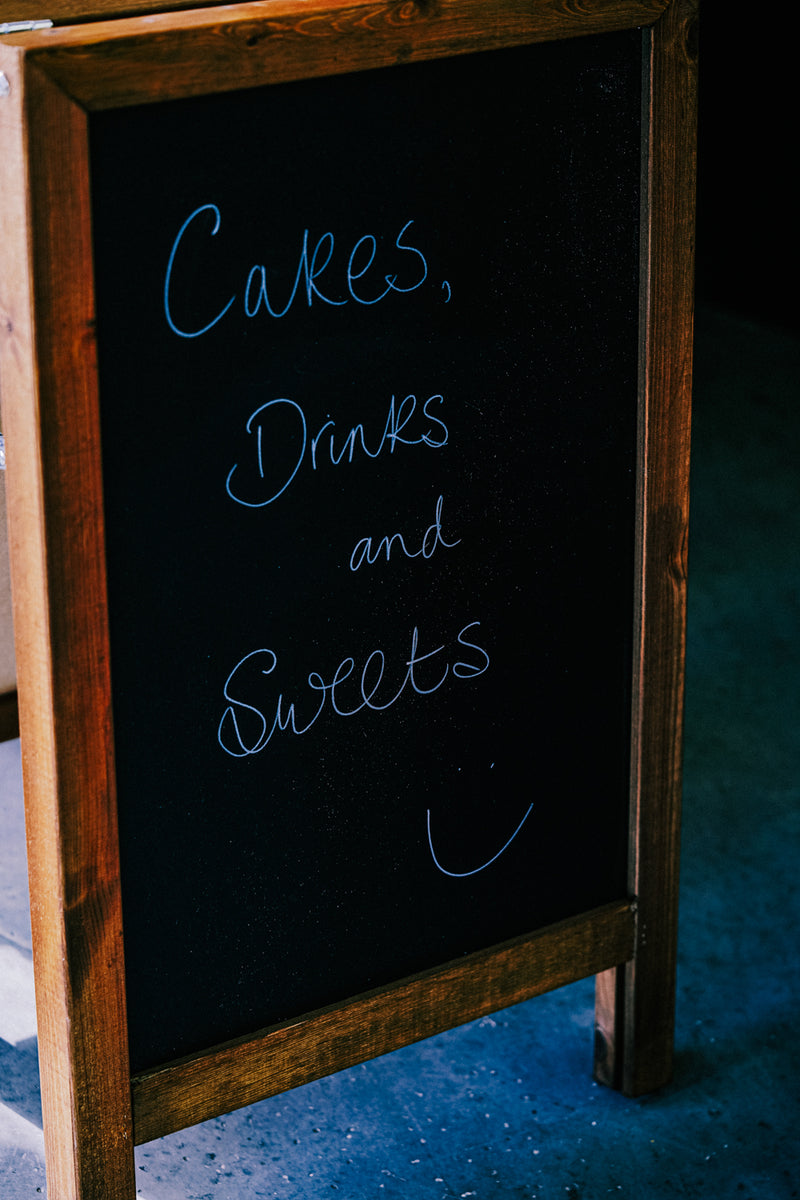 Cakes,
Drinks
and
Sweets